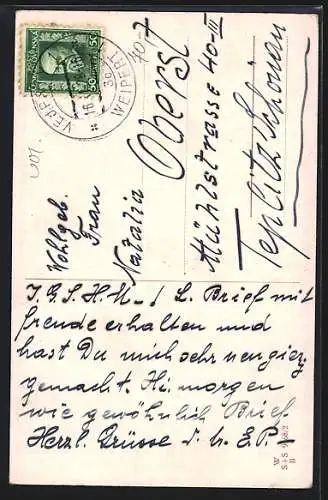 ČESKOSLOVENSKÁ
50 50
VEJPRTY
WEIPERT
40-7
Wohlgeb.
Frau
Natalia Oberst
Mühlstrasse 40-III
Teplitz Schönau
J.G.S.H.U. L. Brief mit
freude erhalten und
hast Du mich sehr neugierig
gemacht. Hi. morgen
wie gewöhnlich Brief
Herzl. Grüsse i. h. E.P.-
W
S+S
B